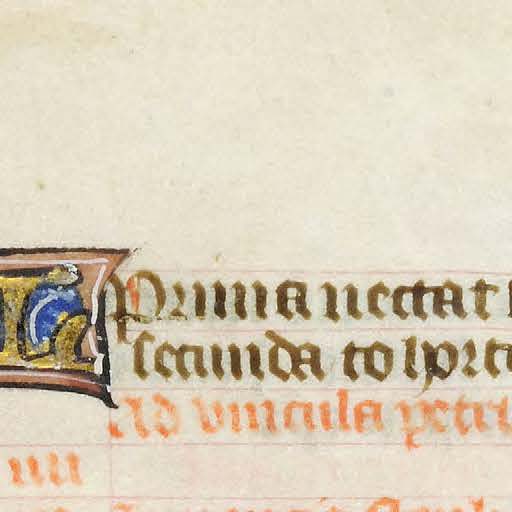 Prima necat
secunda cohort
Ad vincula petri
iiii